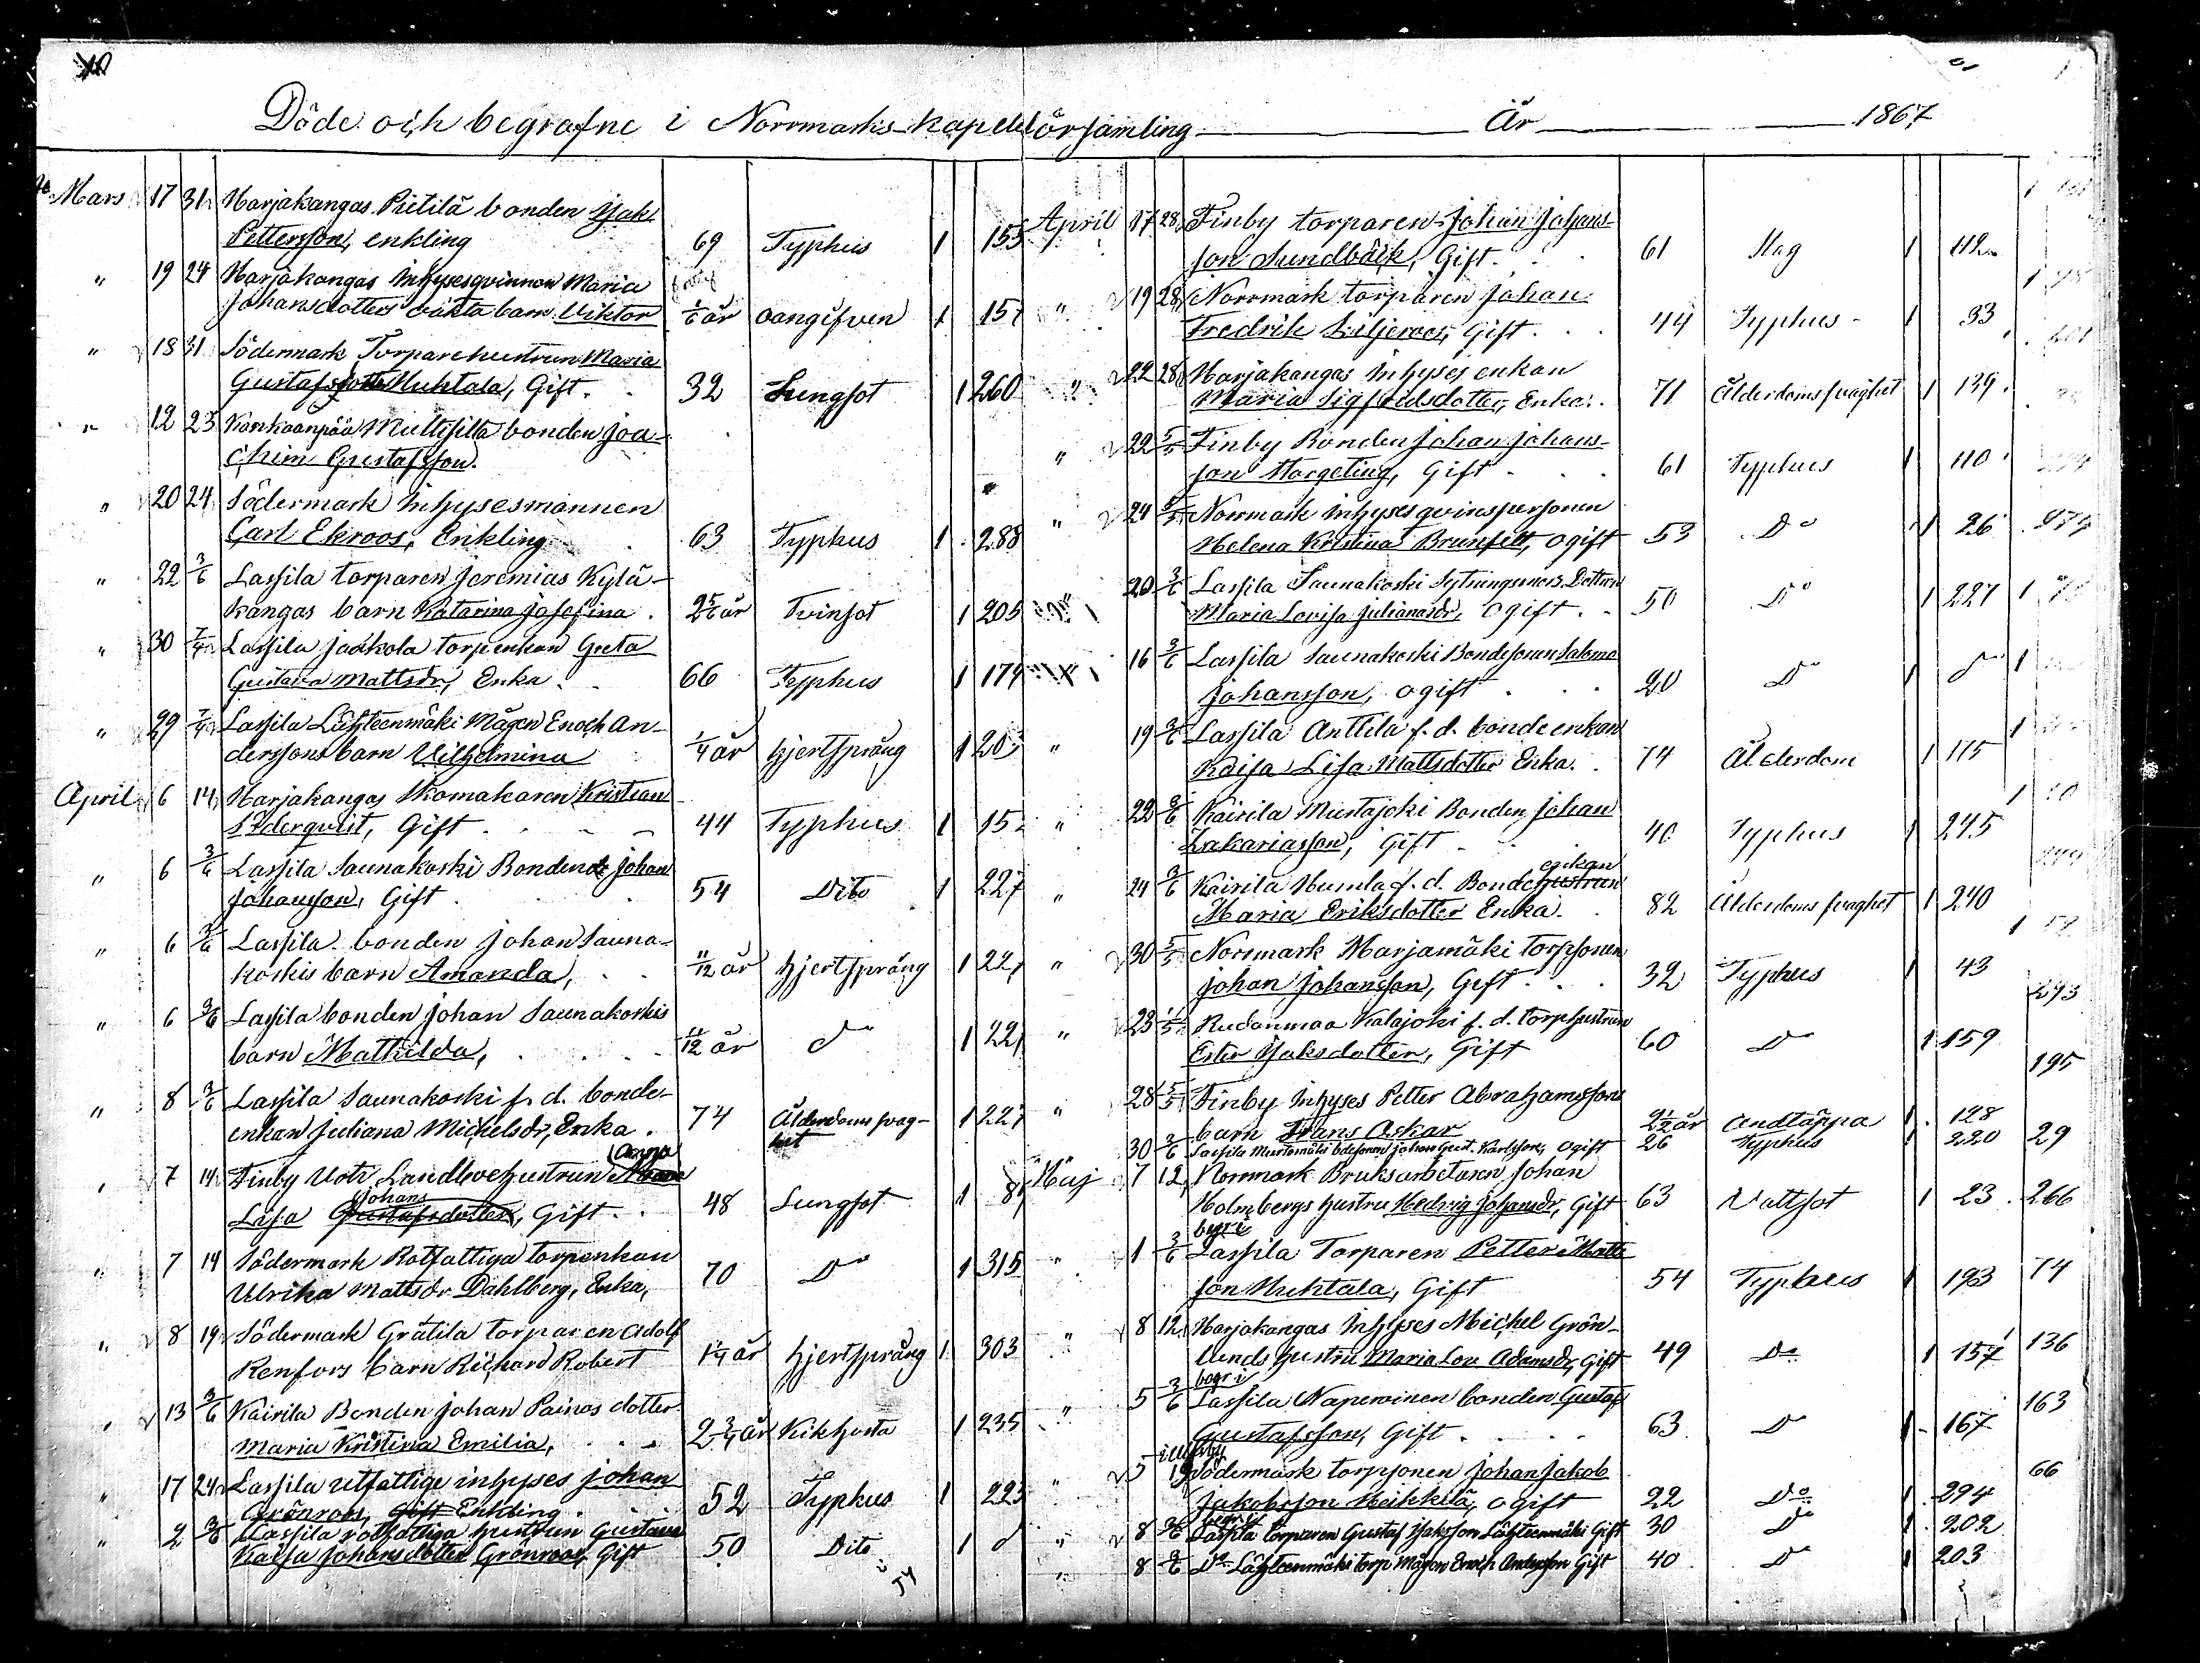 Döde och begrafne i Norrmarks kapellförsamling År 1867
Mars 17 31 Harjakangas Pietilä bonden Isak
Pettersson, enkling 69 Typhus 1 155
" 19 24 Harjakangas Inhysesqvinnan Maria
Johansdotters oäkta barn Viktor 1/6 år oangifven 1 157
" 18 31 Södermark Torparehustrun Maria
Gustafsdotter Huhtala, Gift 32 Lungsot 1 260
" 12 23 Kankaanpää Multisilta bonden Joa-
chim Gustafsson.
" 20 24 Södermark Inhysesmannen
Carl Ekroos, Enkling 63 Typhus 1 288
" 22 3/6 Lassila torparen Jeremias Kylä-
kangas barn Katarina Josefina 2 5/6 år Tvinsot 1 205
" 30 7/4 Lassila Jaakola torpenkan Greta
Gustava Mattsdr, Enka 66 Typhus 1 179
" 29 7/4 Lassila Lähteenmäki Mågen Enoch An-
derssons barn Vilhelmina 1/4 år hjertsprång 1 203
April 6 14 Harjakangas Skomakaren Kristian
Söderqvist, Gift 44 Typhus 1 15
" 6 3/6 Lassila Saunakoski Bonden Johan
Johansson, Gift 54 Dito 1 227
" 6 3/6 Lassila bonden Johan Sauna-
koskis barn Amanda, 11/12 år hjertsprång 1 227
" 6 3/6 Lassila bonden Johan Saunakoskis
barn Mathilda, 11/12 år do 1 227
" 8 3/6 Lassila Saunakoski f. d. bonde-
enkan Juliana Michelsdr, Enka 74 Ålderdomsvag-
het 1 227
" 7 14 Finby Uoti Landbohustrun Anna
Lisa Johans Gustafsdotter, Gift 48 Lungsot 1 8
" 7 14 Södermark Rotfattiga torpenkan
Ulrika Mattsdr Dahlberg, Enka, 70 Do 1 315
" 8 19 Södermark Grätila torparen Adolf
Renfors barn Richard Robert 1 1/4 år hjertsprång 1 303
" 13 3/6 Kairila Bonden Johan Painos dotter
Maria Kristina Emilia, 2 3/4 år Kikhosta 1 235
" 17 24 Lassila utfattige inhyses Johan
Grönroos, Gift Enkling 52 Typhus 1 223
" 2 3/6 Lassila rotfattiga hustrun Gustava
Kaisa Johansdotter Grönroos, Gift 50 Dito 1 d
April 17 28 Finby torparen Johan Johans-
son Sundbäck, Gift 61 Slag 1 112
" 19 28 Norrmark torparen Johan
Fredrik Liljeroos, Gift 44 Typhus 1 33
" 22 28 Harjakangas Inhyses enkan
Maria Sigfridsdotter, Enka 71 Ålderdomsvaghet 1 139
" 22 5/5 Finby Bonden Johan Johans-
son Margeting, Gift 61 Typhus 1 110
" 24 5/5 Norrmark Inhyses qvinspersonen
Helena Kristina Brunfelt, ogift 53 Do 1 26
20 3/6 Lassila Saunakoski Sytningsmors Dottren
Maria Lovisa Julianasdr, Ogift 50 Do 1 227
16 3/6 Lassila Saunakoski Bondesonen Salomo
Johansson, ogift 20 Do 1 d
" 19 3/6 Lassila Anttila f. d. bondeenkan
Kaisa Lisa Mattsdotter Enka. 74 Ålderdom 1 175
" 22 3/6 Kairila Mustajoki Bonden Johan
Zakariasson, Gift 40 Typhus 1 245
" 24 3/6 Kairila Humla f. d. Bondehustrun enkan
Maria Eriksdotter Enka. 82 Ålderdomsvaghet 1 240
" 30 5/5 Norrmark Harjamäki torpsonen
Johan Johansson, Gift 32 Typhus 1 43
" 23 1/5 Rudanmaa Kalajoki f. d. torphustrun
Ester Isaksdotter, Gift 60 Do 1 159
" 28 5/5 Finby Inhyses Petter Abrahamssons
barn Frans Oskar 2 1/2 år Andtäppa 1 128 195
30 3/6 Lassila Mustamäki bdesonen Johan Gust. Karlsson, Ogift 26 Typhus 220 29
Maj 7 12 Norrmark Bruksarbetaren Johan
Holmbergs hustru Hedvig Johansdr, Gift 63 Vattsot 1 23 266
begr i
" 1 3/6 Lassila Torparen Petter Matts-
son Huhtala, Gift 54 Typhus 1 193 74
" 8 12 Harjakangas Inhyses Michel Grön-
lunds hustru Maria Lov. Adamsdr, Gift 49 Do 1 157 136
begr i
" 5 3/6 Lassila Naperoinen bonden Gustaf
Gustafsson, Gift 63 Do 1 167 163
i Ulfsby
" 5 19 Södermark torpsonen Johan Jakob
Jakobsson Heikkilä, ogift 22 Do 294 66
begr i
" 8 3/6 Lassila torparen Gustaf Isaksson Lähteenmäki Gift 30 Do 202
" 8 3/6 Do Lähteenmäki torp. Mågen Enoch Andersson Gift 40 Do 1 203